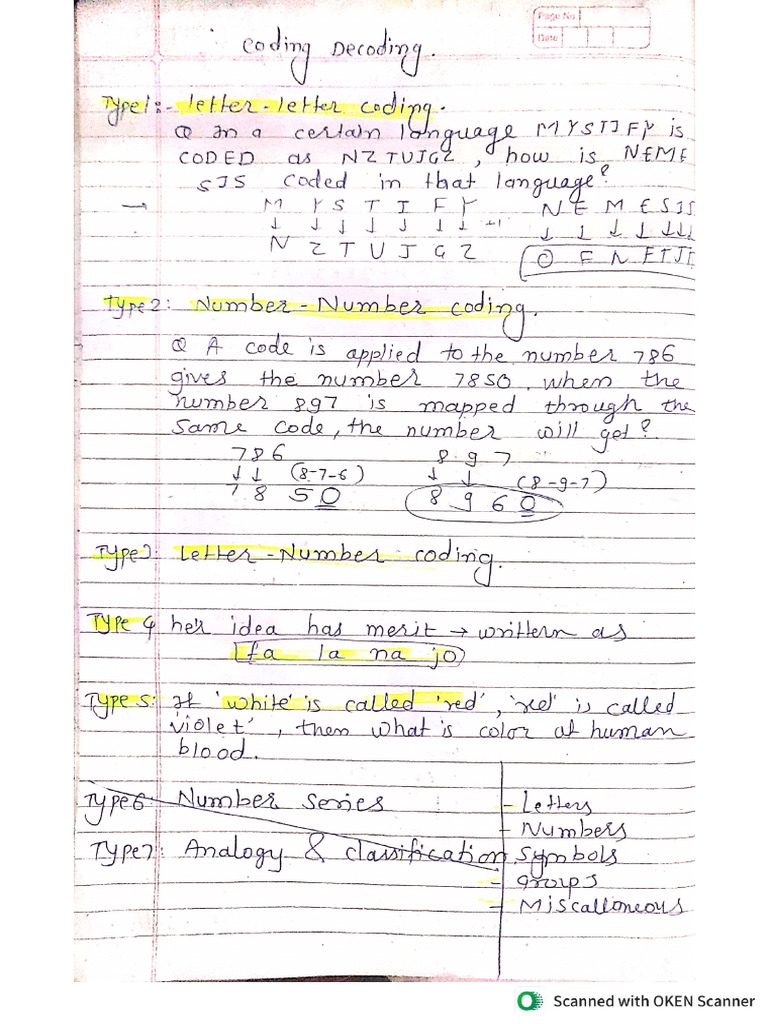 Page No.
Date
Coding Decoding.
Type1:- letter-letter coding.
Q In a certain language MYSTIFY is
CODED as NZTUJGZ, how is NEME
SIS coded in that language?
→ M Y S T I F Y N E M E S I S
↓ ↓ ↓ ↓ ↓ ↓ ↓ +1 ↓ ↓ ↓ ↓ ↓ ↓ ↓
N Z T U J G Z O F N F T J
Type2: Number-Number coding.
Q A code is applied to the number 786
gives the number 7850, when the
number 897 is mapped through the
same code, the number will get?
786 897
↓ ↓ (8-7-6) ↓ ↓ (8-9-7)
7 8 5 0 8 9 6 0
Type3: Letter-Number coding.
Type 4 her idea has merit → writtern as
fa la na jo
Type 5: If 'white' is called 'red', 'red' is called
'violet', then what is color of human
blood.
Type6: Number series - Letters
- Numbers
Type7: Analogy & classification Symbols
- groups
- Miscalloneous
Scanned with OKEN Scanner